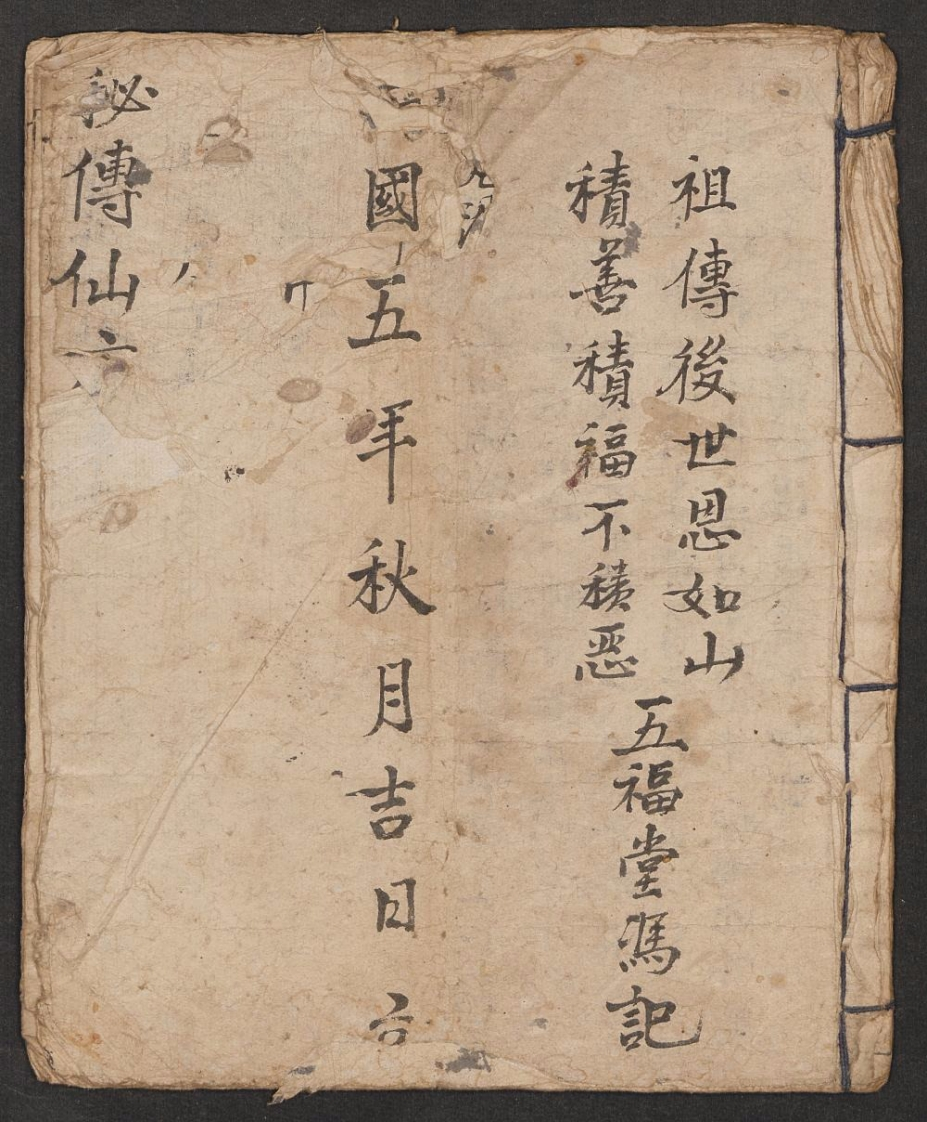 祖傳後世恩如山
積善積福不積惡
五福堂馮記
國五年秋月吉日
秘傳仙